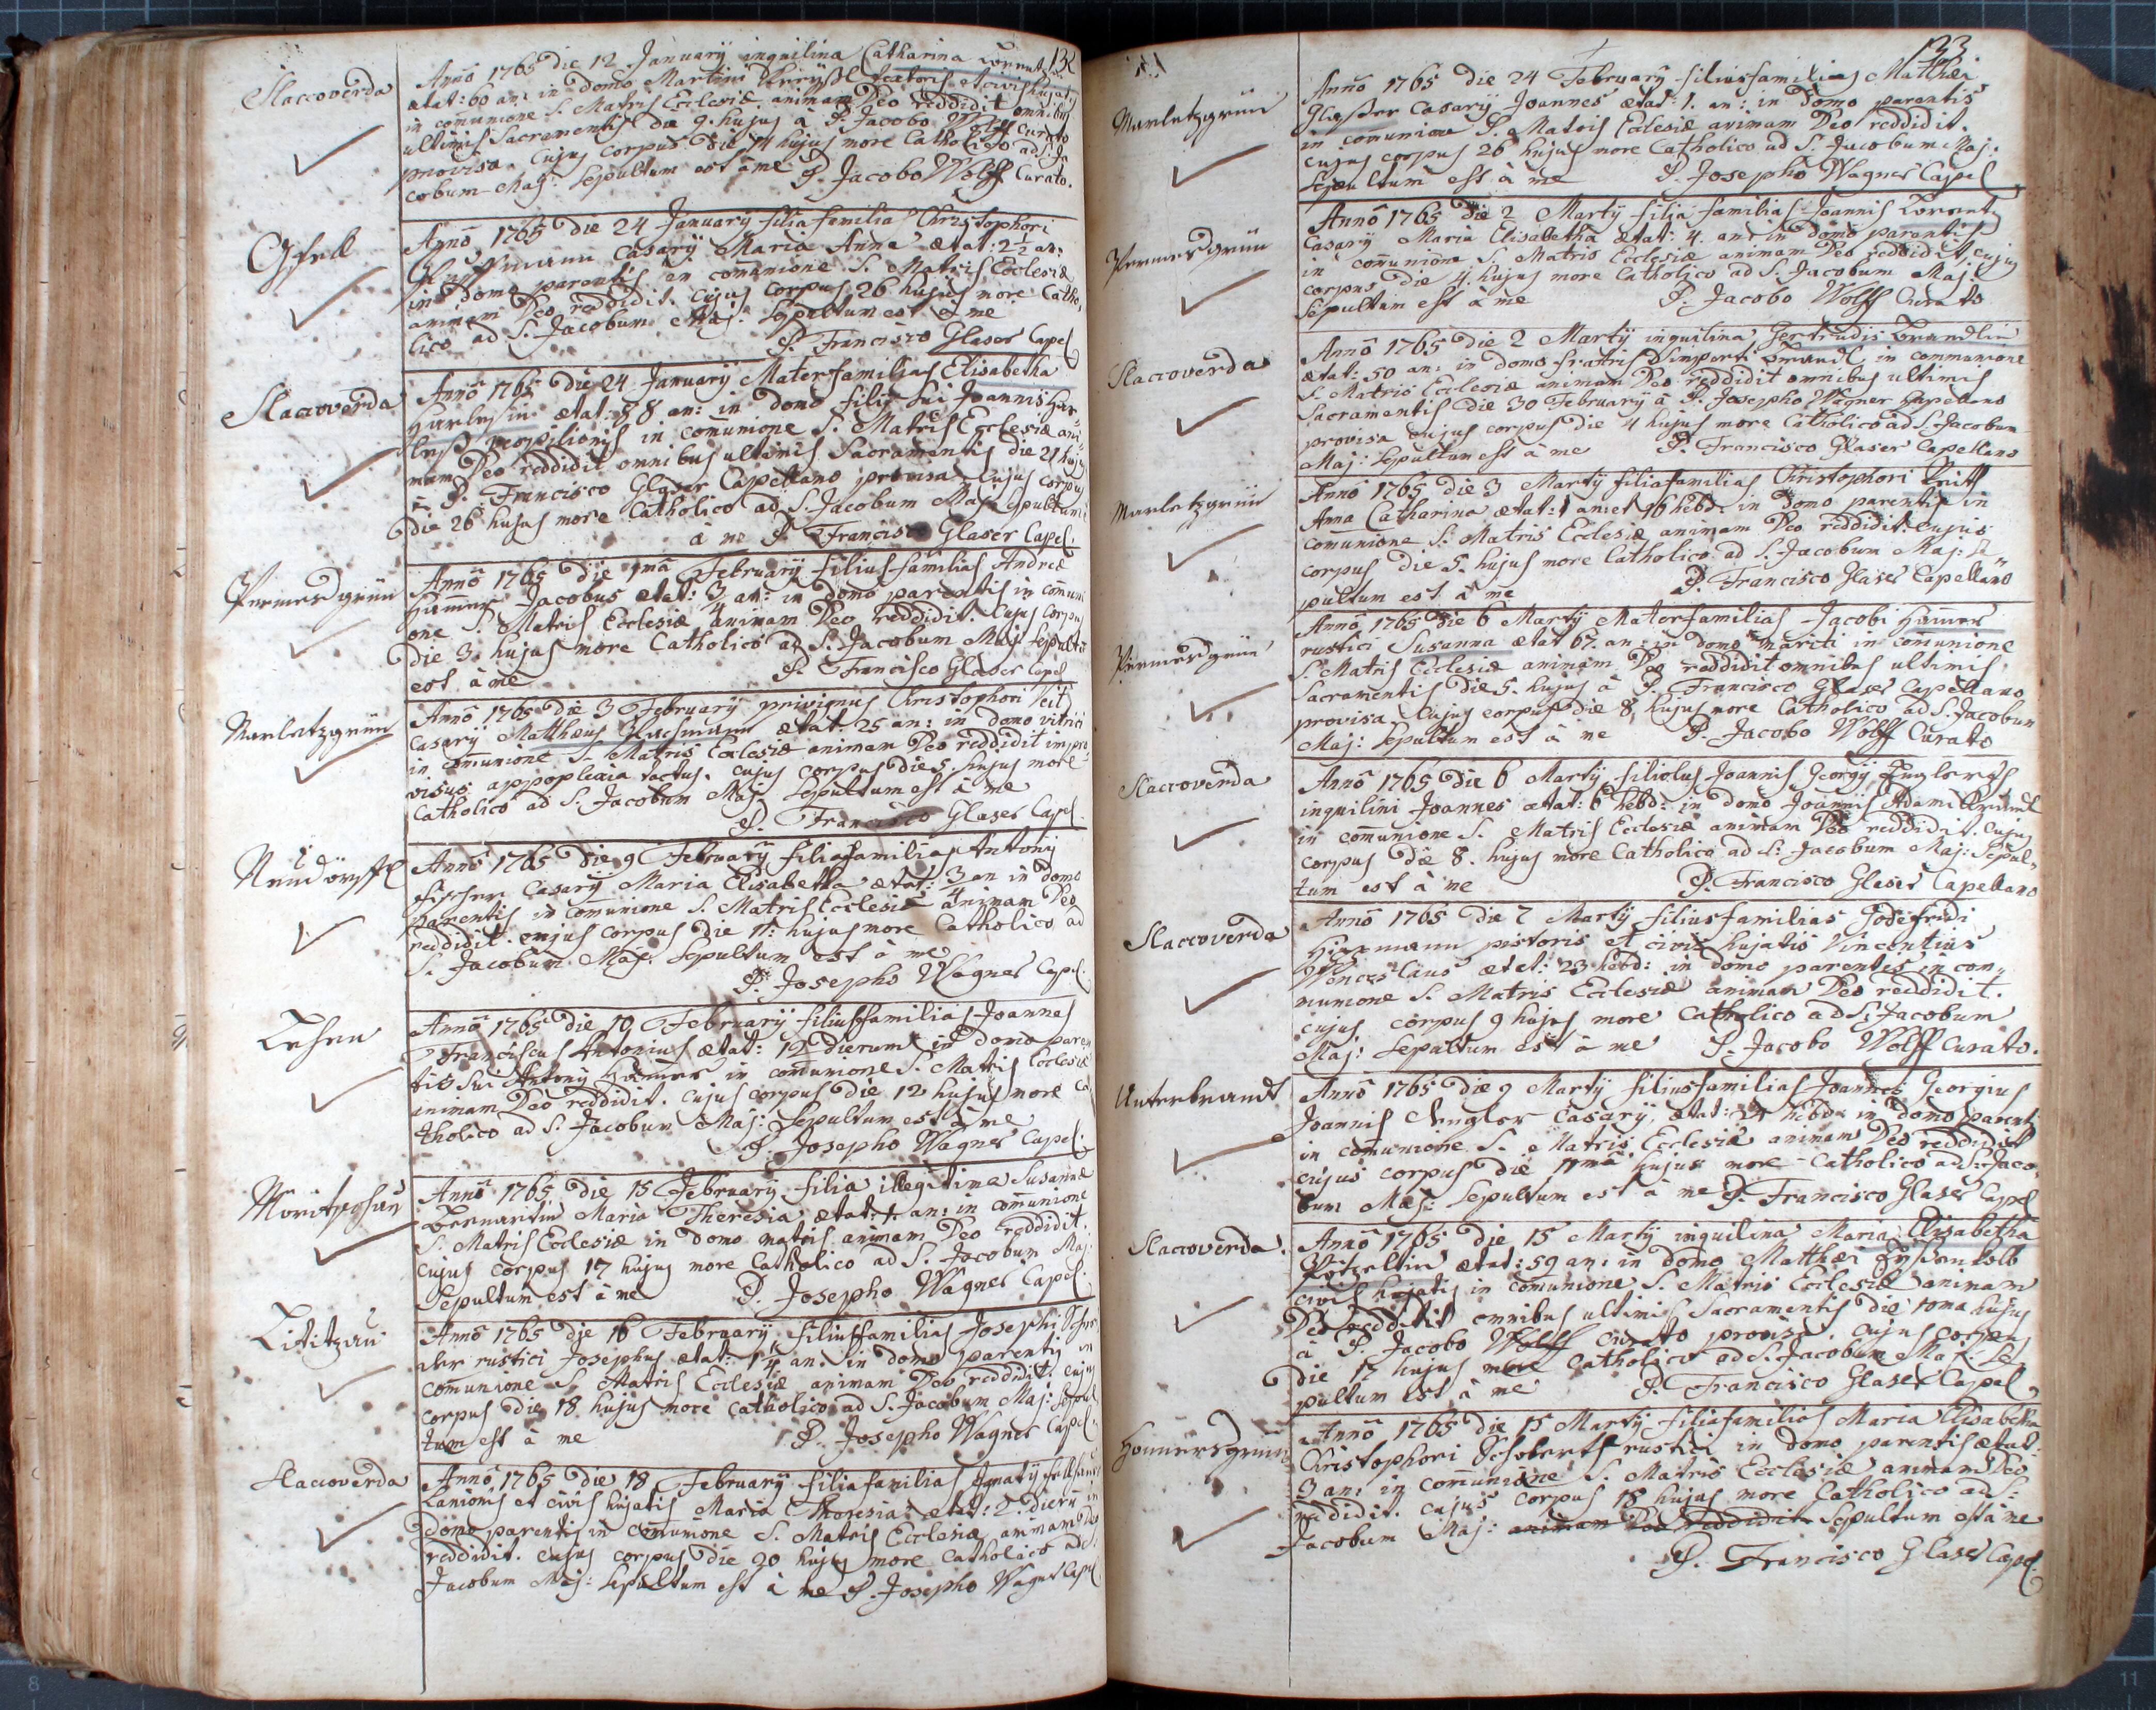 132
Slaccoverda
Anno 1765 die 12 January inquilina Catharina
ætat: 60 an: in domo Martini et civis hujatis
in com̄unione S. Matris Ecclesiæ animam Deo reddidit omnibus
ultimis Sacramentis die 9. hujus a P. Jacobo Wolff Curato
provisa. Cujus corpus die 14 hujus more Catholico ad S. Ja
cobum Maj: Sepultum est à me P. Jacobo Wolff Curato.
Gfell
Anno 1765 die 24 January filia familias Christophori
Casary Maria Anna ætat: 2½ an:
in domo parentis in com̄unione S. Matris Ecclesiæ
animam Deo reddidit. Cujus corpus 26 hujus more Catho,
lico ad S. Jacobum Maj: Sepultum est à me
P. Francisco Glaser Capel
Slaccoverda
Anno 1765 die 24 January Materfamilias Elisabetha
Harlesin ætat: 88 an: in domo filij sui Joannis Har
less in com̄unione S. Matris Ecclesiæ ani
mam Deo reddidit omnibus ultimis Sacramentis die 21 hujus
à P. Francisco Glaser Capellano provisa. Cujus corpus
die 26 hujus more Catholico ad S. Jacobum Maj: Sepultum
à me P. Francisco Glaser Capel.
Permesgrün
Anno 1765 die 1mâ February filius familias Andreæ
Ham̄er Jacobus ætat: ¾ an: in domo parentis in com̄uni
one S. Matris Ecclesiæ animam Deo reddidit. Cujus corpus
die 3. hujus more Catholico ad S. Jacobum Maj: Sepultum
est à me P. Francisco Glaser Capel
Marletzgrün
Anno 1765 die 3 February privignus Christophori Veit
Casary Matthæus ætat: 25 an: in domo vitrici
in com̄unione S. Matris Ecclesiæ animam Deo reddidit impro
visus appoplexia tactus. Cujus corpus die 5. hujus more
Catholico ad S. Jacobum Maj: Sepultum est à me
P. Francisco Glaser Capel.
Neudörffl
Anno 1765 die 9 February filia familias Antony
Fischer Casary Maria Elisabetha ætat: ¾ an in domo
parentis in com̄unione S. Matris Ecclesiæ animam Deo
reddidit. cujus corpus die 11: hujus more Catholico ad
S. Jacobum Maj: Sepultum est à me
P. Josepho Wagner Capel.
Lehen
Anno 1765 die 10 February filius familias Joannes
Franciscus Antonius ætat: 12 dierum in domo paren
tis sui Antony Ham̄er in com̄unione S. Matris Ecclesiæ
animam Deo reddidit. Cujus corpus die 12 hujus more Ca
tholico ad S. Jacobum Maj: Sepultum est à me
P. Josepho Wagner Capel.
Anno 1765 die 15 February filia illegitima Susannæ
Maria Theresia ætat: 1 an: in com̄unione
S. Matris Ecclesiæ in domo matris animam Deo reddidit.
Cujus corpus 17 hujus more Catholico ad S. Jacobum Maj:
Sepultum est à me P. Josepho Wagner Capel.
Lititzau
Anno 1765 die 16 February filius familias Josephi
rustici Josephus ætat: 1¼ an. in domo parentis in
com̄unione S. Matris Ecclesiæ animam Deo reddidit. cujus
corpus die 18 hujus more Catholico ad S. Jacobum Maj: Sepul
tum est à me P. Josepho Wagner Capel
Slaccoverda
Anno 1765 die 18 February filia familias Ignaty
Lanionis et civis hujatis Maria Theresia ætat: 2. dierū in
domo parentis in com̄unione S. Matris Ecclesiæ animam Deo
reddidit. cujus corpus die 20 hujus more Catholico ad S.
Jacobum Maj: Sepultum est à me P. Josepho Wagner Capel
133
Marletzgrün
Anno 1765 die 24 February filius familias Matthæi
Casary Joannes ætat: 1. an: in domo parentis
in com̄unione S. Matris Ecclesiæ animam Deo reddidit.
Cujus corpus 26 hujus more Catholico ad S. Jacobum Maj.
Sepultum est à me P. Josepho Wagner Capel
Permesgrün
Anno 1765 die 2 Marty filia familias Joannis Lorentz
Casary Maria Elisabetha ætat: 4. an: in domo parentis
in com̄unione S. Matris Ecclesiæ animam Deo reddidit. cujus
corpus die 4 hujus more Catholico ad S. Jacobum Maj.
Sepultum est à me P. Jacobo Wolff Curato
Slaccoverda
Anno 1765 die 2 Marty inquilina Gertrudis Brandlin
ætat: 50 an: in domo fratris Brandl in communione
S. Matris Ecclesiæ animam Deo reddidit omnibus ultimis
Sacramentis die 30 February à P. Josepho Wagner Capellano
provisa cujus corpus die 4 hujus more Catholico ad S. Jacobum
Maj: Sepultum est à me P. Francisco Glaser Capellano
Marletzgrün
Anno 1765 die 3 Marty filia familias Christophori Veitl
Anna Catharina ætat: 1 an: et 16 hebd: in domo parentis in
com̄unione S. Matris Ecclesiæ animam Deo reddidit. cujus
corpus die 5. hujus more Catholico ad S. Jacobum Maj: Se„
pultum est à me P. Francisco Glaser Capellano
Permesgrün
Anno 1765 die 6 Marty Materfamilias Jacobi Ham̄er
rustici Susanna ætat 67. an: in domo mariti in com̄unione
S. Matris Ecclesiæ animam Deo reddidit omnibus ultimis
Sacramentis die 5. hujus à P. Francisco Glaser Capellano
provisa. Cujus corpus die 8 hujus more Catholico ad S. Jacobum
Maj: Sepultum est à me P. Jacobo Wolff Curato
Slaccoverda
Anno 1765 die 6 Marty filiolus Joannis Georgy
inquilini Joannes ætat: 6 hebd: in domo Joannis Adami Brandl
in com̄unione S. Matris Ecclesiæ animam Deo reddidit. Cujus
corpus die 8. hujus more Catholico ad S: Jacobum Maj: Sepul„
tum est à me P. Francisco Glaser Capellano
Slaccoverda
Anno 1765 die 7 Marty filius familias Godefridi
pistoris et civis hujatis Vincentius
Wenceslaus ætat: 23 hebd: in domo parentis in com„
munione S. Matris Ecclesiæ animam Deo reddidit.
cujus corpus 9 hujus more Catholico ad S: Jacobum
Maj: Sepultum est à me P. Jacobo Wolff Curato.
Unterbrandt
Anno 1765 die 9 Marty filius familias Joannes Georgius
Joannis Casary, ætat: hebd: in domo parentis
in com̄unione S. Matris Ecclesiæ animam Deo reddidit
cujus corpus die 11mâ hujus more Catholico ad S: Jaco
bum Maj: Sepultum est à me P. Francisco Glaser Capel
Slaccoverda.
Anno 1765 die 15 Marty inquilina Maria Elisabetha
ætat: 59 an: in domo Matthæi
civis hujatis in com̄unione S. Matris Ecclesiæ animam
Deo reddidit omnibus ultimis Sacramentis die 10ma hujus
a P. Jacobo Wolff Curato provisa. Cujus corpus
die 17 hujus more Catholico ad S. Jacobum Maj: Se
pultum est à me P. Francisco Glaser Capel
Anno 1765 die 15 Marty filia familias Maria Elisabetha
Christophori rustici in domo parentis ætat:
3 an: in com̄unione S. Matris Ecclesiæ animam Deo
reddidit. cujus corpus 18 hujus more Catholico ad S.
Jacobum Maj: animam Deo reddidit Sepultum est à me
P. Francisco Glaser Capel.
8
11